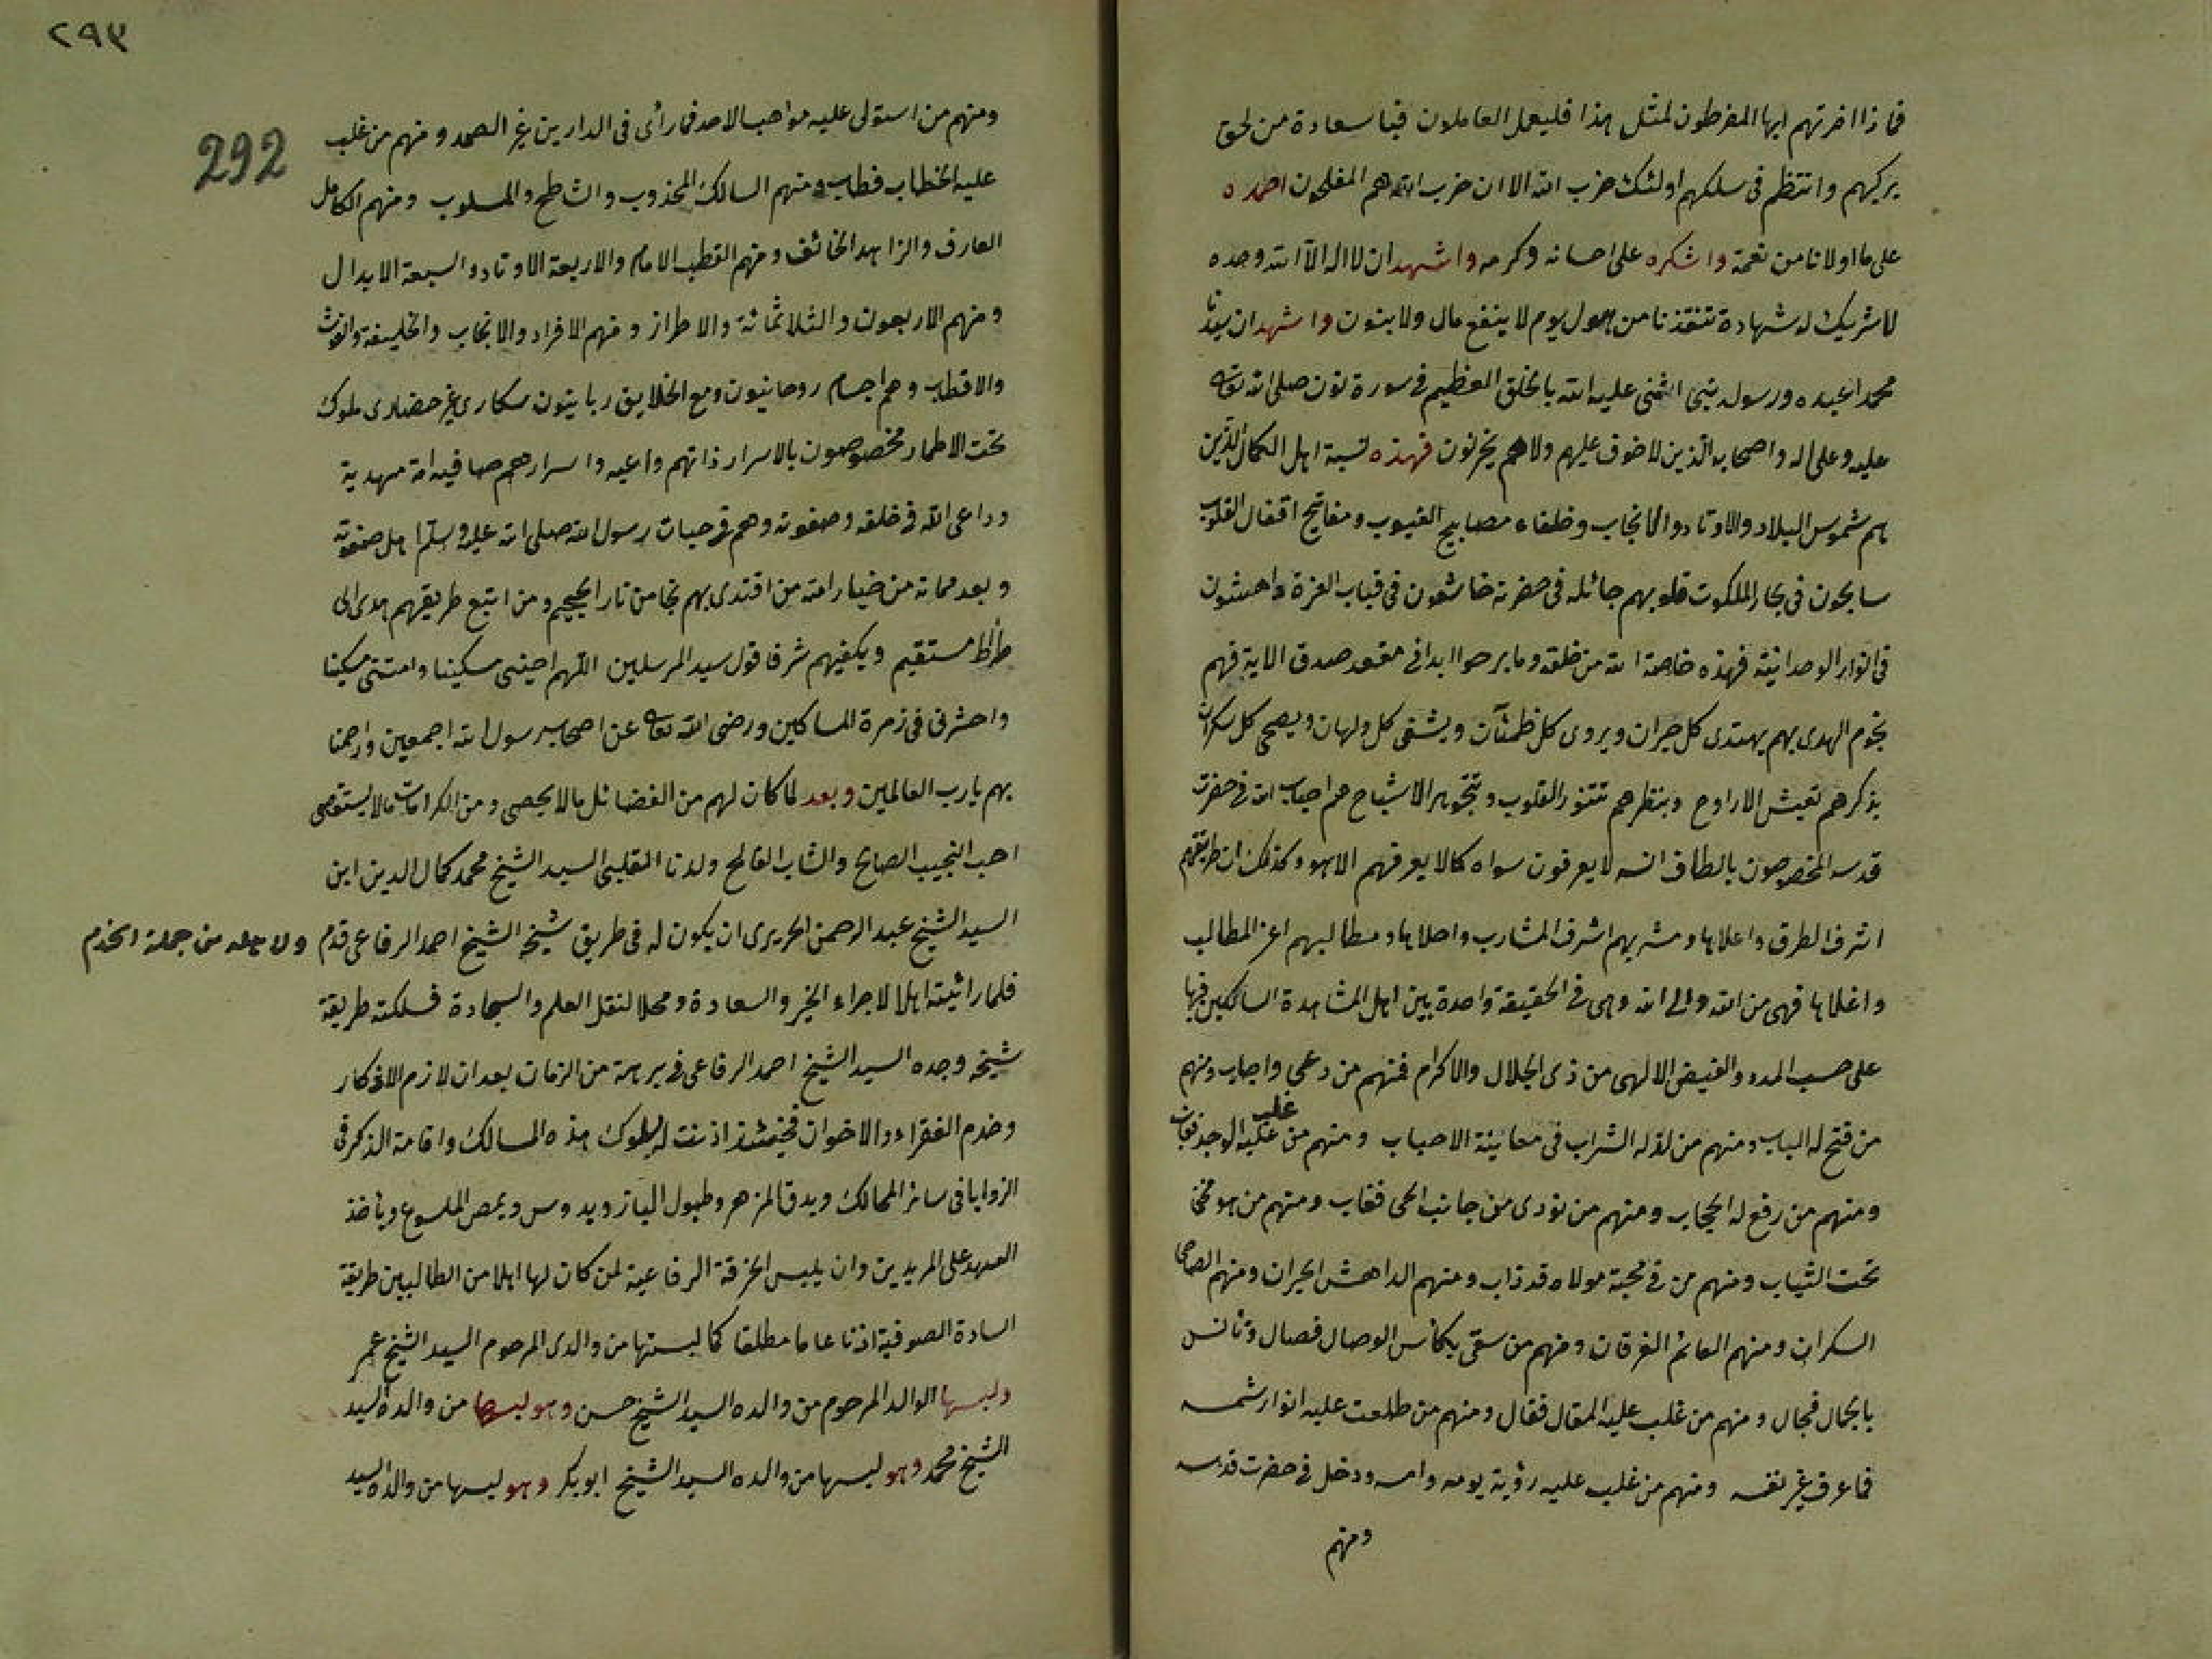 فماذا اخرتهم ايها المفرطون لمثل هذا فليعمل العاملون فيا سعادة من لحق
بركبهم وانتظم فى سلكهم اولئك حزب الله الا ان حزب الله هم المفلحون احمده
على ما اولانا من نعمة واشكره على احسانه وكرمه واشهد ان لا اله الا الله وحده
لا شريك له شهادة تنقذنا من هول يوم لا ينفع مال ولا بنون واشهد ان سيدنا
محمدا عبده ورسوله نبى اثنى عليه الله بالخلق العظيم فى سورة نون صلى الله تعالى
عليه وعلى اله واصحابه الذين لا خوف عليهم ولا هم يحزنون فهذه نسبة اهل الكمال الذين
هم شموس البلاد والاوتاد والانجاب وخلفاء مصابيح الغيوب ومفاتيح اقفال القلوب
سابحون فى بحار الملكوت قلوبهم جائله فى حضرته خاشعون فى قباب العزة داهشون
فى انوار الوحدانية فهذه خاصة الله من خلقه وما برحوا ابدا فى مقعد صدق الاية فهم
نجوم الهدى بهم يهتدى كل حيران ويروى كل ظمئآن ويشفى كل ولهان ويصحى كل سكران
بذكرهم تعيش الارواح وبنظرهم تتنور القلوب وتتجوهر الاشباح هم احباب الله فى حضرت
قدسه المخصوصون بالطاف انسه لا يعرفون سواه كما لا يعرفهم الا هو وكذلك ان طريقهم
اشرف الطرق واعلاها ومشربهم اشرف المشارب واحلاها ومطالبهم اعز المطالب
واغلاها فهى من الله والى الله وهى فى الحقيقة واحدة بين اهل المشاهدة السالكين فيها
على حسب المدد والفيض الالهى من ذى الجلال والاكرام فمنهم من دعى واجاب ومنهم
من فتح له الباب ومنهم من لذ له الشراب فى معاينة الاحباب ومنهم من غلب عليه الوجد فغاب
ومنهم من رفع له الحجاب ومنهم من نودى من جانب الحى فغاب ومنهم من هو مخفى
تحت الثياب ومنهم من فى محبة مولاه قد ذاب ومنهم الداهش الحيران ومنهم الصاحى
السكران ومنهم العائم الغرقان ومنهم من سقى بكأس الوصال فصال وتانس
بالجمال فجال ومنهم من غلب عليه المقال فقال ومنهم من طلعت عليه انوار شمسه
فما عرف غير نفسه ومنهم من غلب عليه رؤية يومه وامسه ودخل فى حضرت قدسه
ومنهم
٢٩٣
292
ومنهم من استولى عليه مواهب الاحد فما رأى فى الدارين غير الصمد ومنهم من غلب
عليه الخطاب فطاب ومنهم السالك المجذوب والشاطح والمسلوب ومنهم الكامل
العارف والزاهد الخائف ومنهم القطب الامام والاربعة الاوتاد والسبعة الابدال
ومنهم الاربعون والثلاثمائة والاطراز ومنهم الافراد والانجاب والخليفة والغوث
والاقطاب وهم اجسام روحانيون ومع الخلايق ربانيتون سكارى غير حضارى ملوك
تحت الاطمار مخصوصون بالاسرار ذاتهم واعيه واسرارهم صافيه امة مهدية
وداعى الله فى خلقه وصفوته وهم فى حيات رسول الله صلى الله عليه وسلم اهل صفوته
وبعد مماته من خيار امته من اقتدى بهم نجا من نار الجحيم ومن اتبع طريقهم هدى الى
صراط مستقيم ويكفيهم شرفا قول سيد المرسلين اللهم احينى مسكينا وامتنى مسكينا
واحشرنى فى زمرة المساكين ورضى الله تعالى عن اصحاب رسول الله اجمعين وارحمنا
بهم يارب العالمين وبعد لما كان لهم من الفضائل ما لا يحصى ومن الكرامات ما لا يستقصى
احب النجيب الصالح والشاب الفالح ولدنا القلبى السيد الشيخ محمد كمال الدين ابن
السيد الشيخ عبد الرحمن الحريرى ان يكون له فى طريق شيخه الشيخ احمد الرفاعى قدم ولاجله من جملة الخدم
فلما رائيته اهلا لاجراء الخير والسعادة ومحلا لنقل العلم والسجادة فسلكته طريقة
شيخه وجده السيد الشيخ احمد الرفاعى فى برهة من الزمان بعد ان لازم الاذكار
وخدم الفقراء والاخوان فحينئذ اذنت له بسلوك هذه المسالك واقامة الذكر فى
الزوايا فى سائر الممالك ويدق المزهر وطبول الباز ويدوس ويمص الملسوع ويأخذ
العهد على المريدين وان يلبس الخرقة الرفاعية لمن كان لها اهلا من الطالبين طريقة
السادة الصوفية اذنا عاما مطلقا كما لبستها من والدى المرحوم السيد الشيخ عمر
ولبسها الوالد المرحوم من والده السيد الشيخ حسن وهو لبسها من والده السيد
الشيخ محمد وهو لبسها من والده السيد الشيخ ابو بكر وهو لبسها من والده السيد